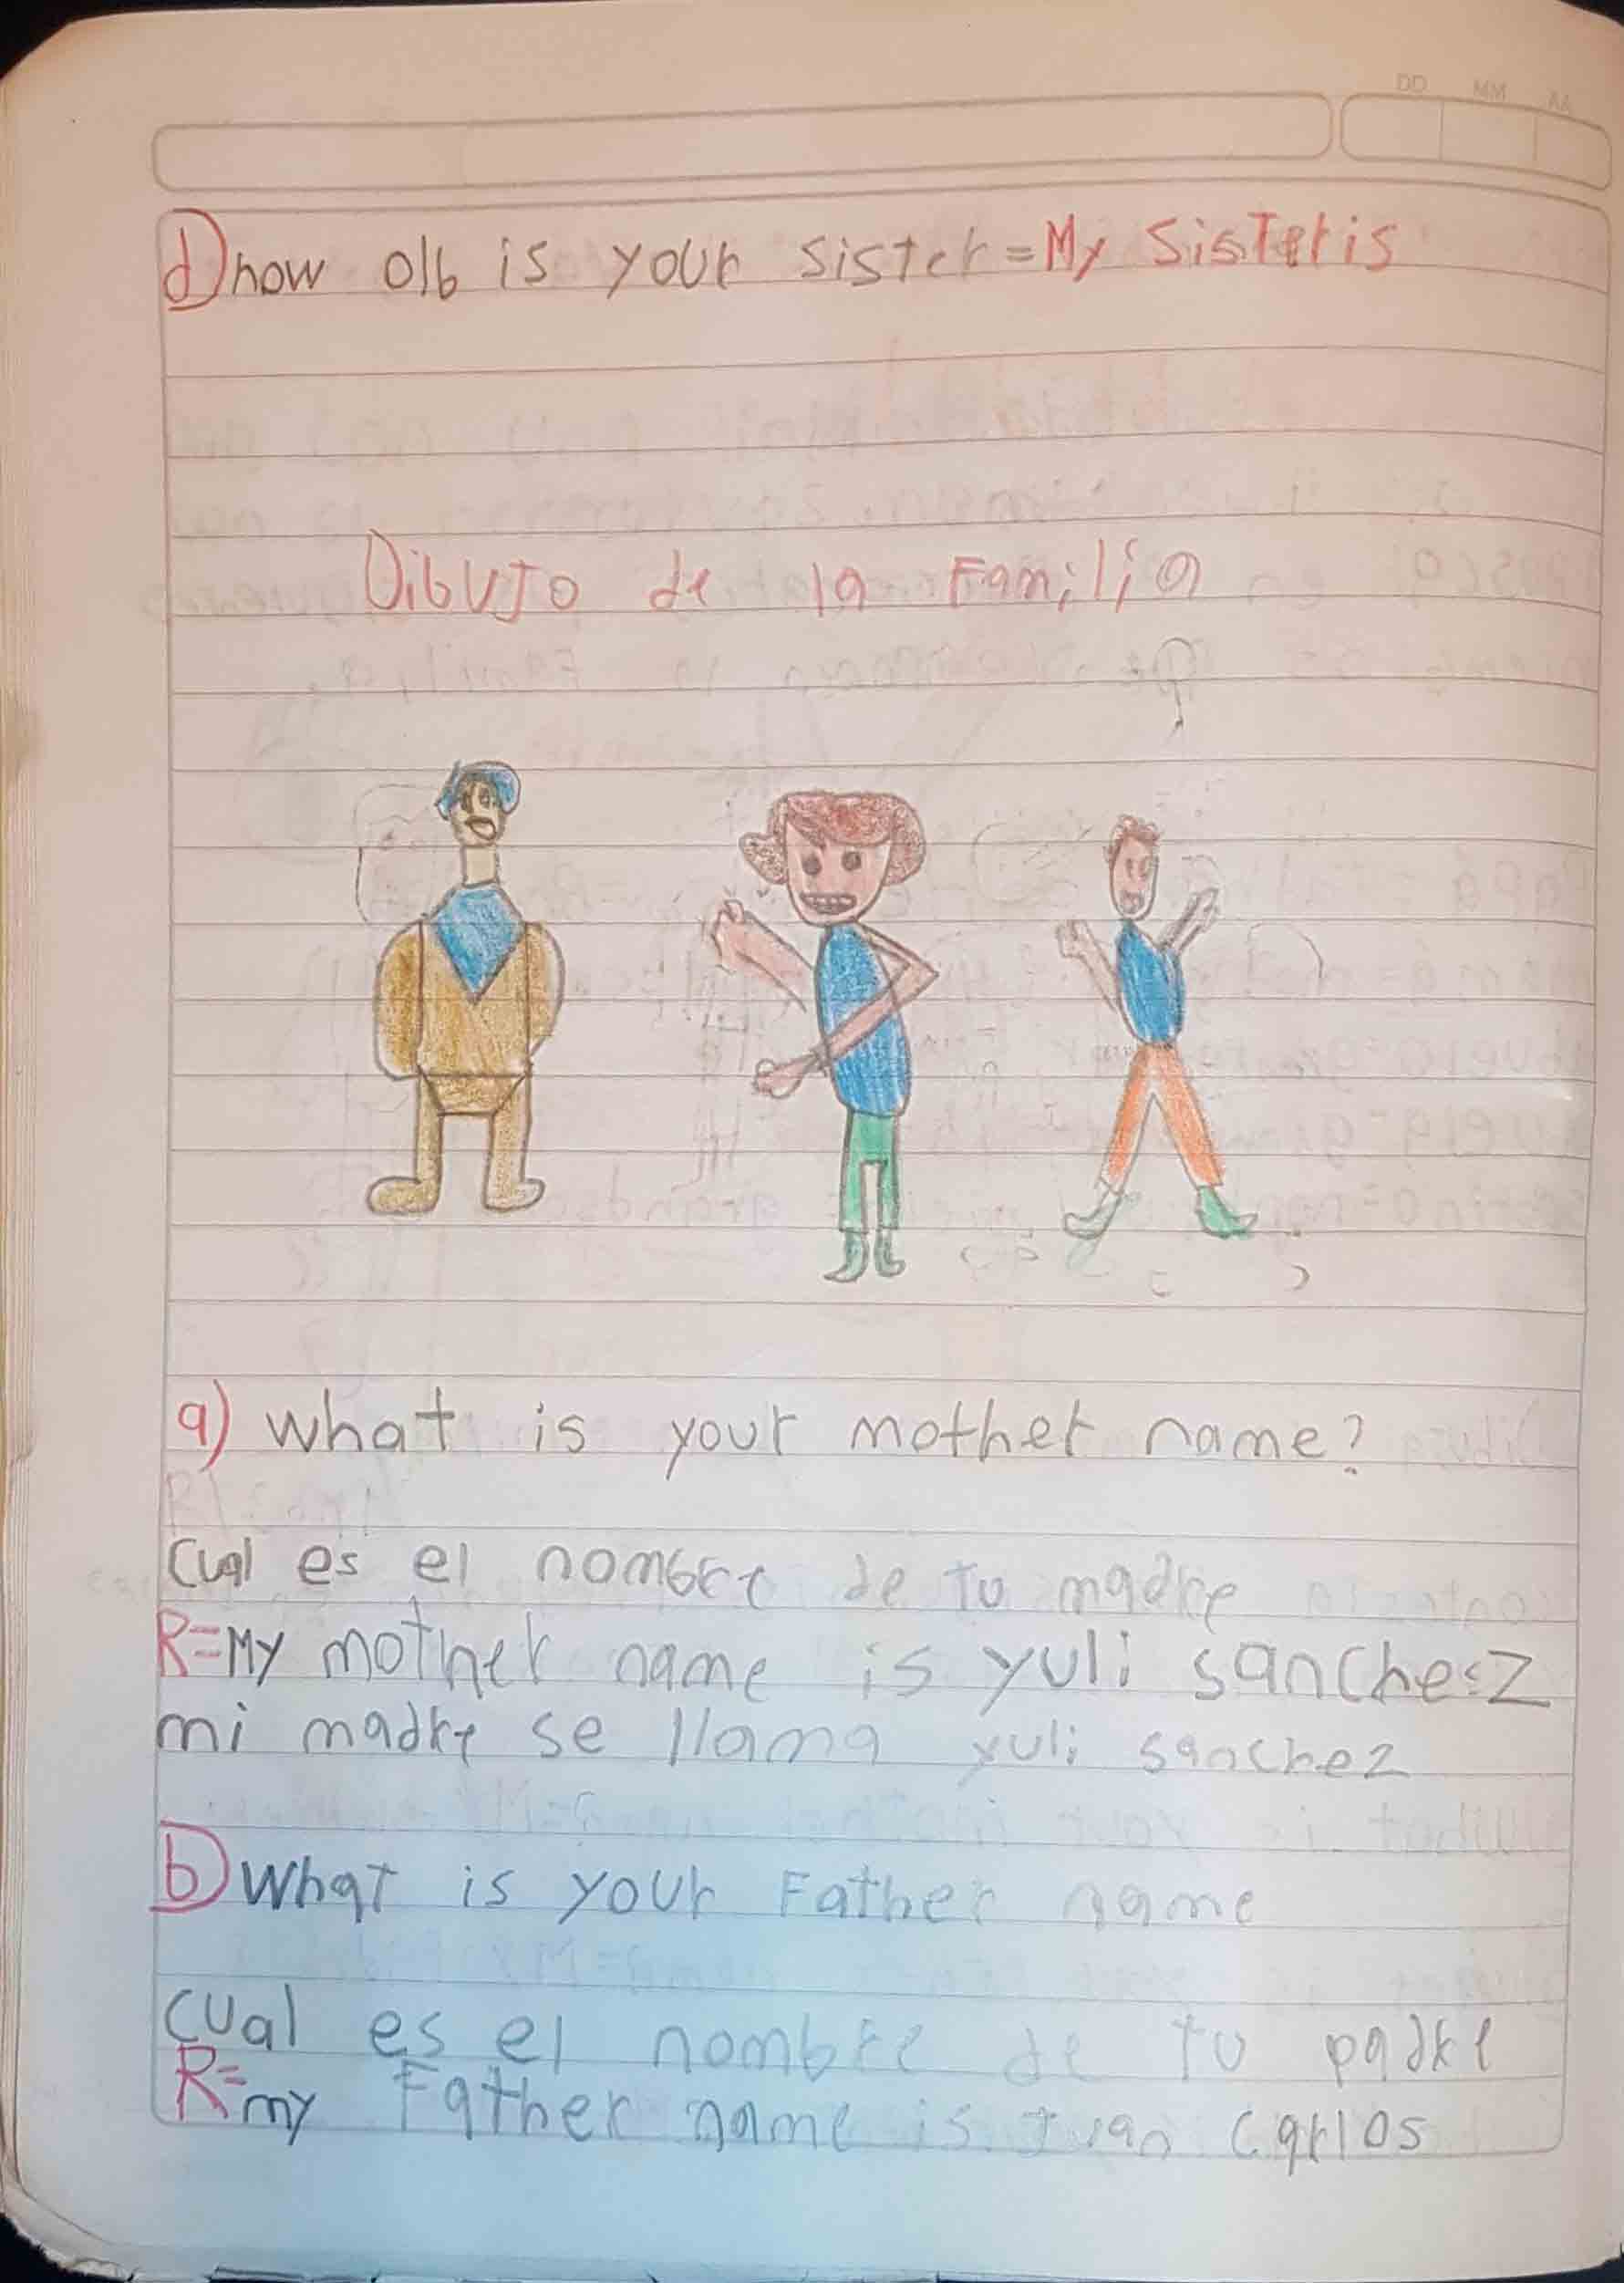 DD MM AA
d) how olb is your sister = My SisTer is
Dibujo de la Familia
a) what is your mother name?
Cual es el nombre de tu madre
R= My mother name is yuli sanchez
mi madre se llama yuli sanchez
b) What is your Father name
cual es el nombre de tu padre
R= my Father name is Juan Carlos